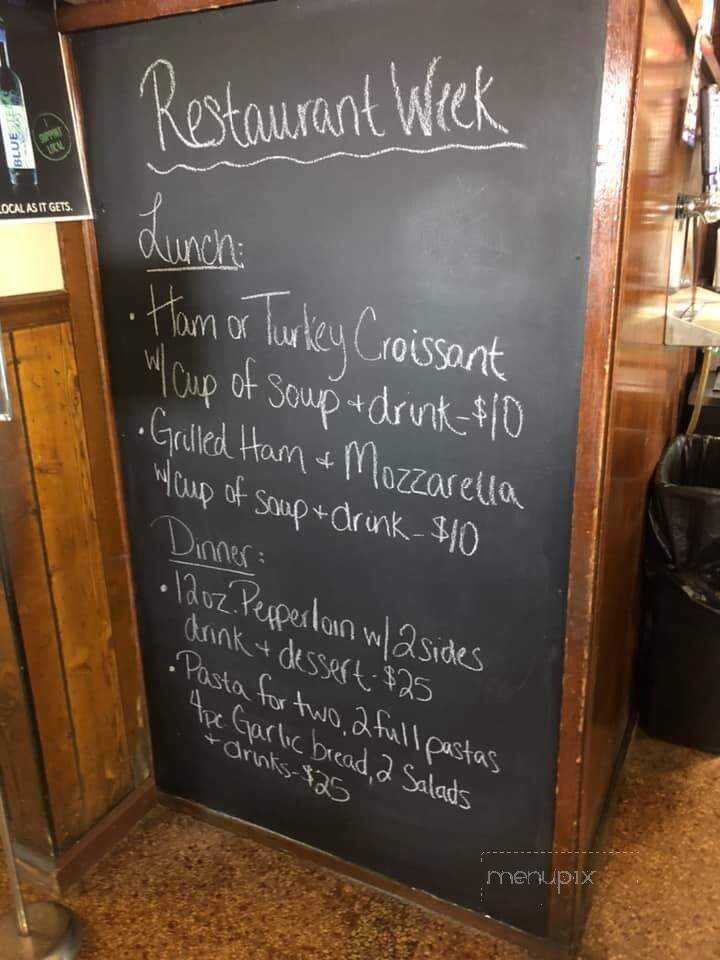 Restaurant Week
Lunch:
• Ham or Turkey Croissant
w/ cup of soup + drink - $10
• Grilled Ham + Mozzarella
w/ cup of soup + drink - $10
Dinner:
• 12oz. Pepperloin w/ 2 sides
drink + dessert - $25
• Pasta for two, 2 full pastas
4pc Garlic bread, 2 Salads
+ drinks - $25
BLUE
I
SUPPORT
LOCAL
LOCAL AS IT GETS.
menupix